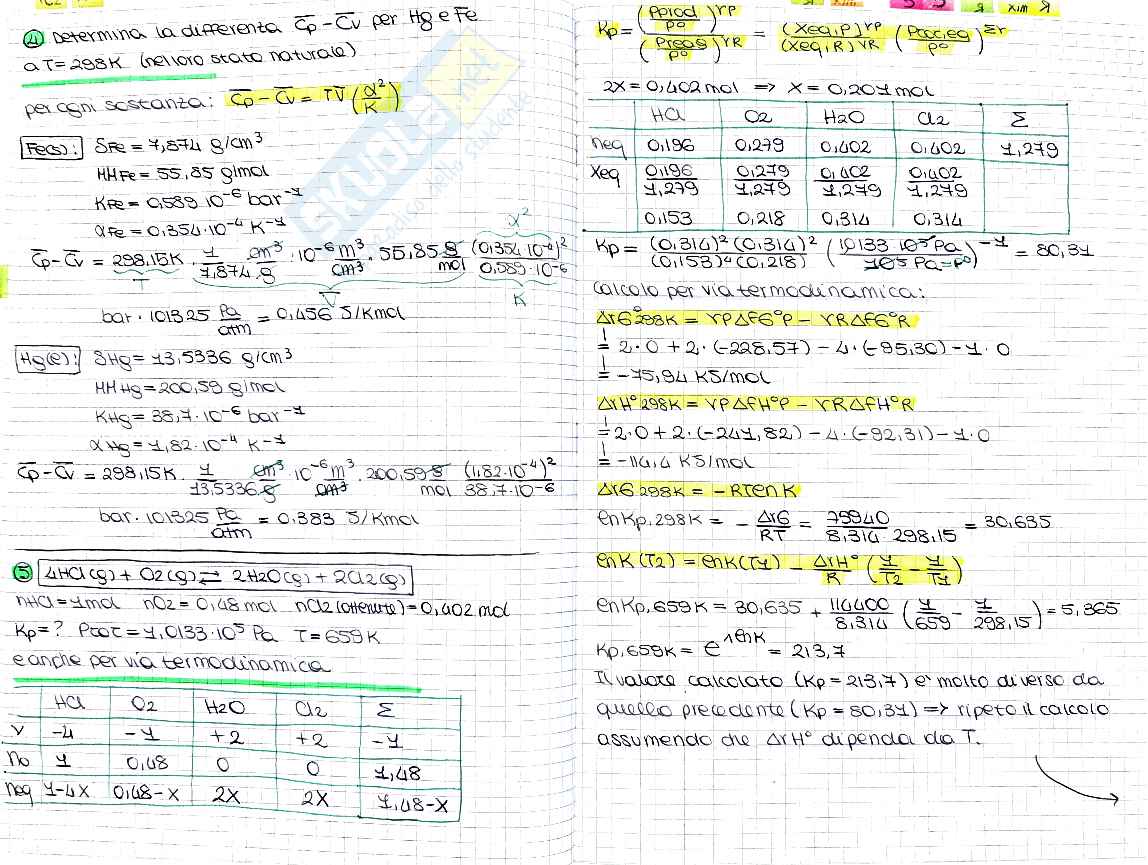 4) Determina la differenza C̄p - C̄v per Hg e Fe
a T=298K (nel loro stato naturale)
per ogni sostanza: C̄p - C̄v = TV̄(α²/K)
Fe(s): δFe = 7,874 g/cm³
MMFe = 55,85 g/mol
KFe = 0,589·10⁻⁶ bar⁻¹
αFe = 0,354·10⁻⁴ K⁻¹
C̄p - C̄v = 298,15K · 1/7,874 cm³/g · 10⁻⁶ m³/cm³ · 55,85 g/mol (0,354·10⁻⁴)²/0,589·10⁻⁶
T V̄ α² K
bar · 101325 Pa/atm = 0,456 J/Kmol
Hg(l): δHg = 13,5336 g/cm³
MMHg = 200,59 g/mol
KHg = 38,7·10⁻⁶ bar⁻¹
αHg = 1,82·10⁻⁴ K⁻¹
C̄p - C̄v = 298,15K · 1/13,5336 cm³/g · 10⁻⁶ m³/cm³ · 200,59 g/mol (1,82·10⁻⁴)²/38,7·10⁻⁶
bar · 101325 Pa/atm = 0,383 J/Kmol
5) 4HCl(g) + O2(g) ⇄ 2H2O(g) + 2Cl2(g)
nHCl = 1mol nO2 = 0,48 mol nCl2 (ottenute) = 0,402 mol
Kp=? PTOT = 1,0133·10⁵ Pa T = 659K
e anche per via termodinamica
HCl O2 H2O Cl2 Σ
ν -4 -1 +2 +2 -1
no 1 0,48 0 0 1,48
neq 1-4X 0,48-X 2X 2X 1,48-X
Kp = (Pprod/P°)^νP / (Preag/P°)^νR = (Xeq,P)^νP / (Xeq,R)^νR (Ptot,eq/P°)^Σν
2X = 0,402mol ⇒ X = 0,201mol
HCl O2 H2O Cl2 Σ
neq 0,196 0,279 0,402 0,402 1,279
Xeq 0,196/1,279 0,279/1,279 0,402/1,279 0,402/1,279
0,153 0,218 0,314 0,314
Kp = (0,314)²(0,314)² / (0,153)⁴(0,218) (1,0133 10⁵ Pa / 10⁵ Pa=P°)⁻¹ = 80,31
Calcolo per via termodinamica:
ΔrG°298K = νPΔfG°P - νRΔfG°R
= 2·0 + 2·(-228,57) - 4·(-95,30) - 1·0
= -75,94 KJ/mol
ΔrH°298K = νPΔfH°P - νRΔfH°R
= 2·0 + 2·(-241,82) - 4·(-92,31) - 1·0
= -114,4 KJ/mol
ΔrG 298K = -RTlnK
lnKp,298K = - ΔrG/RT = 75940/8,314 298,15 = 30,635
lnK(T2) = lnK(T1) - ΔrH°/R (1/T2 - 1/T1)
lnKp,659K = 30,635 + 114400/8,314 (1/659 - 1/298,15) = 5,365
Kp,659K = e^lnK = 213,7
Il valore calcolato (Kp=213,7) e' molto diverso da
quello precedente (Kp=80,31) ⇒ ripeto il calcolo
assumendo che ΔrH° dipenda da T.
SKUOLA.net